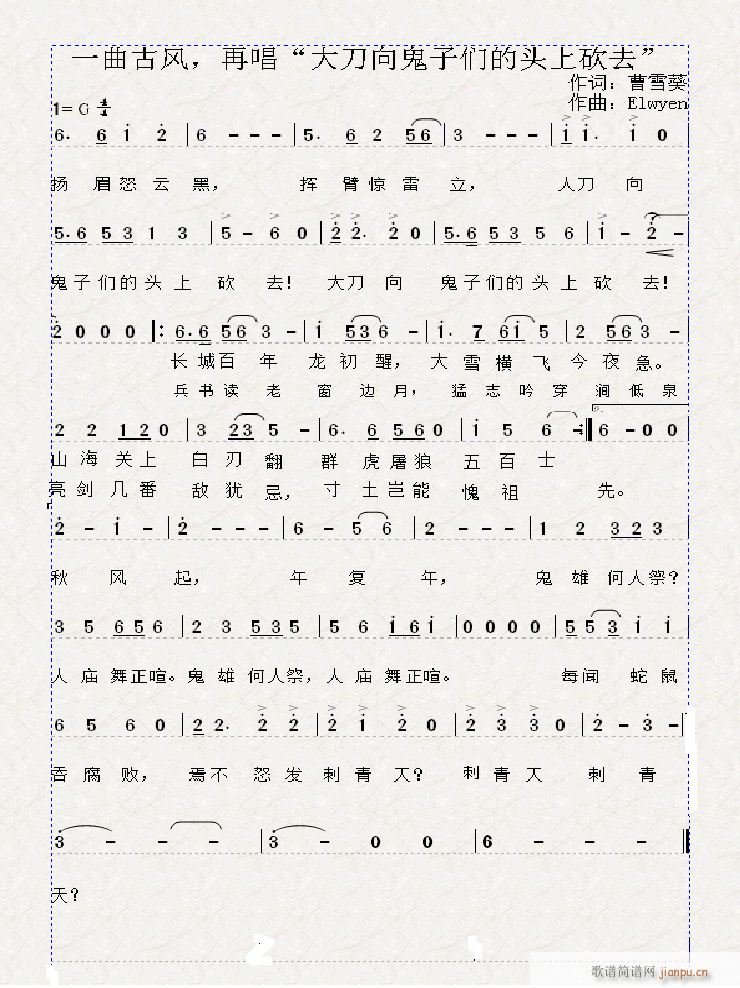 一曲古风，再唱“大刀向鬼子们的头上砍去”
作词：曹雪葵
作曲：Elwyen
1= G 4/4
6. 6 i 2 | 6 - - - | 5. 6 2 56 | 3 - - - | i i. i 0
扬眉怒云黑， 挥臂惊雷立， 大刀 向
5.6 53 1 3 | 5 - 6 0 | 2 2. 2 0 | 5.6 53 5 6 | i - 2 -
鬼子们的头上 砍 去！ 大刀 向 鬼子们的头上 砍 去！
2 0 0 0 |: 6.6 56 3 - | i 536 - | i. 7 6i 5 | 2 563 -
长城百 年 龙初醒， 大雪横飞今夜急。
兵书读 老 窗边月， 猛志吟穿涧低泉
2 2 120 0 | 3 23 5 - | 6. 6 5660 | i 5 6 - :| 6 - 0 0
山海关上 白刃翻 群虎屠狼 五百士
亮剑几番 敌犹忌， 寸土岂能 愧祖 先。
2 - i - | 2 - - - | 6 - 5 6 | 2 - - - | 1 2 323
秋 风 起， 年 复 年， 鬼雄何人祭？
3 5 656 | 2 3 535 | 5 6 i6i | 0 0 0 0 | 553 i i
人庙舞正喧。鬼雄何人祭，人庙舞正喧。 每闻 蛇鼠
6 5 6 0 | 2 2. 2 2 | 2 i 2 0 | 2 3 3 0 | 2 - 3 -
吞腐败， 焉不 怒发刺青天？ 刺青天 刺 青
3 - - - | 3 - 0 0 | 6 - - -
天？
歌谱简谱网 jianpu.cn